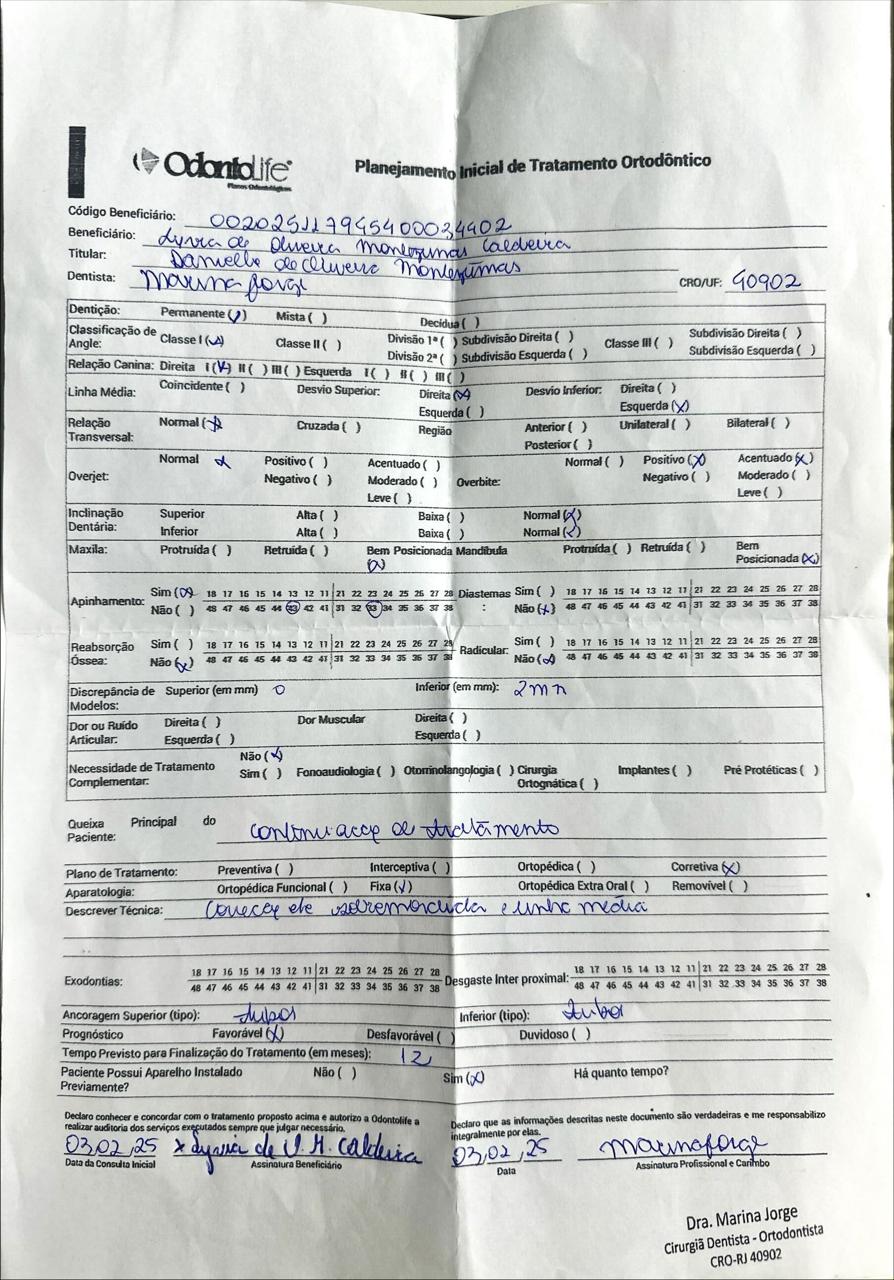 OdontoLife
Planos Odontológicos
Planejamento Inicial de Tratamento Ortodôntico
Código Beneficiário: 002025117945400034402
Beneficiário: Lyvia de Oliveira Montezumas Caldeira
Titular: Danielle de Oliveira Montezumas
Dentista: Marina Jorge CRO/UF: 40902
Dentição: Permanente (✓) Mista ( ) Decídua ( )
Classificação de Angle: Classe I (x) Classe II ( ) Divisão 1ª ( ) Subdivisão Direita ( ) Classe III ( ) Subdivisão Direita ( )
Divisão 2ª ( ) Subdivisão Esquerda ( ) Subdivisão Esquerda ( )
Relação Canina: Direita I (x) II ( ) III ( ) Esquerda I ( ) II ( ) III ( )
Linha Média: Coincidente ( ) Desvio Superior: Direita (x) Desvio Inferior: Direita ( )
Esquerda ( ) Esquerda (x)
Relação Transversal: Normal (x) Cruzada ( ) Região Anterior ( ) Unilateral ( ) Bilateral ( )
Posterior ( )
Overjet: Normal x Positivo ( ) Acentuado ( ) Overbite: Normal ( ) Positivo (x) Acentuado (x)
Negativo ( ) Moderado ( ) Negativo ( ) Moderado ( )
Leve ( ) Leve ( )
Inclinação Dentária: Superior Alta ( ) Baixa ( ) Normal (x)
Inferior Alta ( ) Baixa ( ) Normal (x)
Maxila: Protruída ( ) Retruída ( ) Bem Posicionada (x) Mandíbula Protruída ( ) Retruída ( ) Bem Posicionada (x)
Apinhamento: Sim (x) 18 17 16 15 14 13 12 11 21 22 23 24 25 26 27 28 Diastemas: Sim ( ) 18 17 16 15 14 13 12 11 21 22 23 24 25 26 27 28
Não ( ) 48 47 46 45 44 43 42 41 31 32 33 34 35 36 37 38 Não (x) 48 47 46 45 44 43 42 41 31 32 33 34 35 36 37 38
Reabsorção Óssea: Sim ( ) 18 17 16 15 14 13 12 11 21 22 23 24 25 26 27 28 Radicular: Sim ( ) 18 17 16 15 14 13 12 11 21 22 23 24 25 26 27 28
Não (x) 48 47 46 45 44 43 42 41 31 32 33 34 35 36 37 38 Não (x) 48 47 46 45 44 43 42 41 31 32 33 34 35 36 37 38
Discrepância de Modelos: Superior (em mm) 0 Inferior (em mm): 2mm
Dor ou Ruído Articular: Direita ( ) Dor Muscular Direita ( )
Esquerda ( ) Esquerda ( )
Necessidade de Tratamento Complementar: Não (x)
Sim ( ) Fonoaudiologia ( ) Otorrinolangologia ( ) Cirurgia Ortognática ( ) Implantes ( ) Pré Protéticas ( )
Queixa Principal do Paciente: continuacao de tratamento
Plano de Tratamento: Preventiva ( ) Interceptiva ( ) Ortopédica ( ) Corretiva (x)
Aparatologia: Ortopédica Funcional ( ) Fixa (✓) Ortopédica Extra Oral ( ) Removível ( )
Descrever Técnica: de sobremordida e linha media
Exodontias: 18 17 16 15 14 13 12 11 21 22 23 24 25 26 27 28 Desgaste Inter proximal: 18 17 16 15 14 13 12 11 21 22 23 24 25 26 27 28
48 47 46 45 44 43 42 41 31 32 33 34 35 36 37 38 48 47 46 45 44 43 42 41 31 32 33 34 35 36 37 38
Ancoragem Superior (tipo): tubos Inferior (tipo): tubos
Prognóstico Favorável (x) Desfavorável ( ) Duvidoso ( )
Tempo Previsto para Finalização do Tratamento (em meses): 12
Paciente Possui Aparelho Instalado Previamente? Não ( ) Sim (x) Há quanto tempo?
Declaro conhecer e concordar com o tratamento proposto acima e autorizo a Odontolife a
realizar auditoria dos serviços executados sempre que julgar necessário.
Declaro que as informações descritas neste documento são verdadeiras e me responsabilizo
integralmente por elas.
03,02,25 x Lyvia de O. M. Caldeira 03,02,25 Marina Jorge
Data da Consulta Inicial Assinatura Beneficiário Data Assinatura Profissional e Carimbo
Dra. Marina Jorge
Cirurgiã Dentista - Ortodontista
CRO-RJ 40902